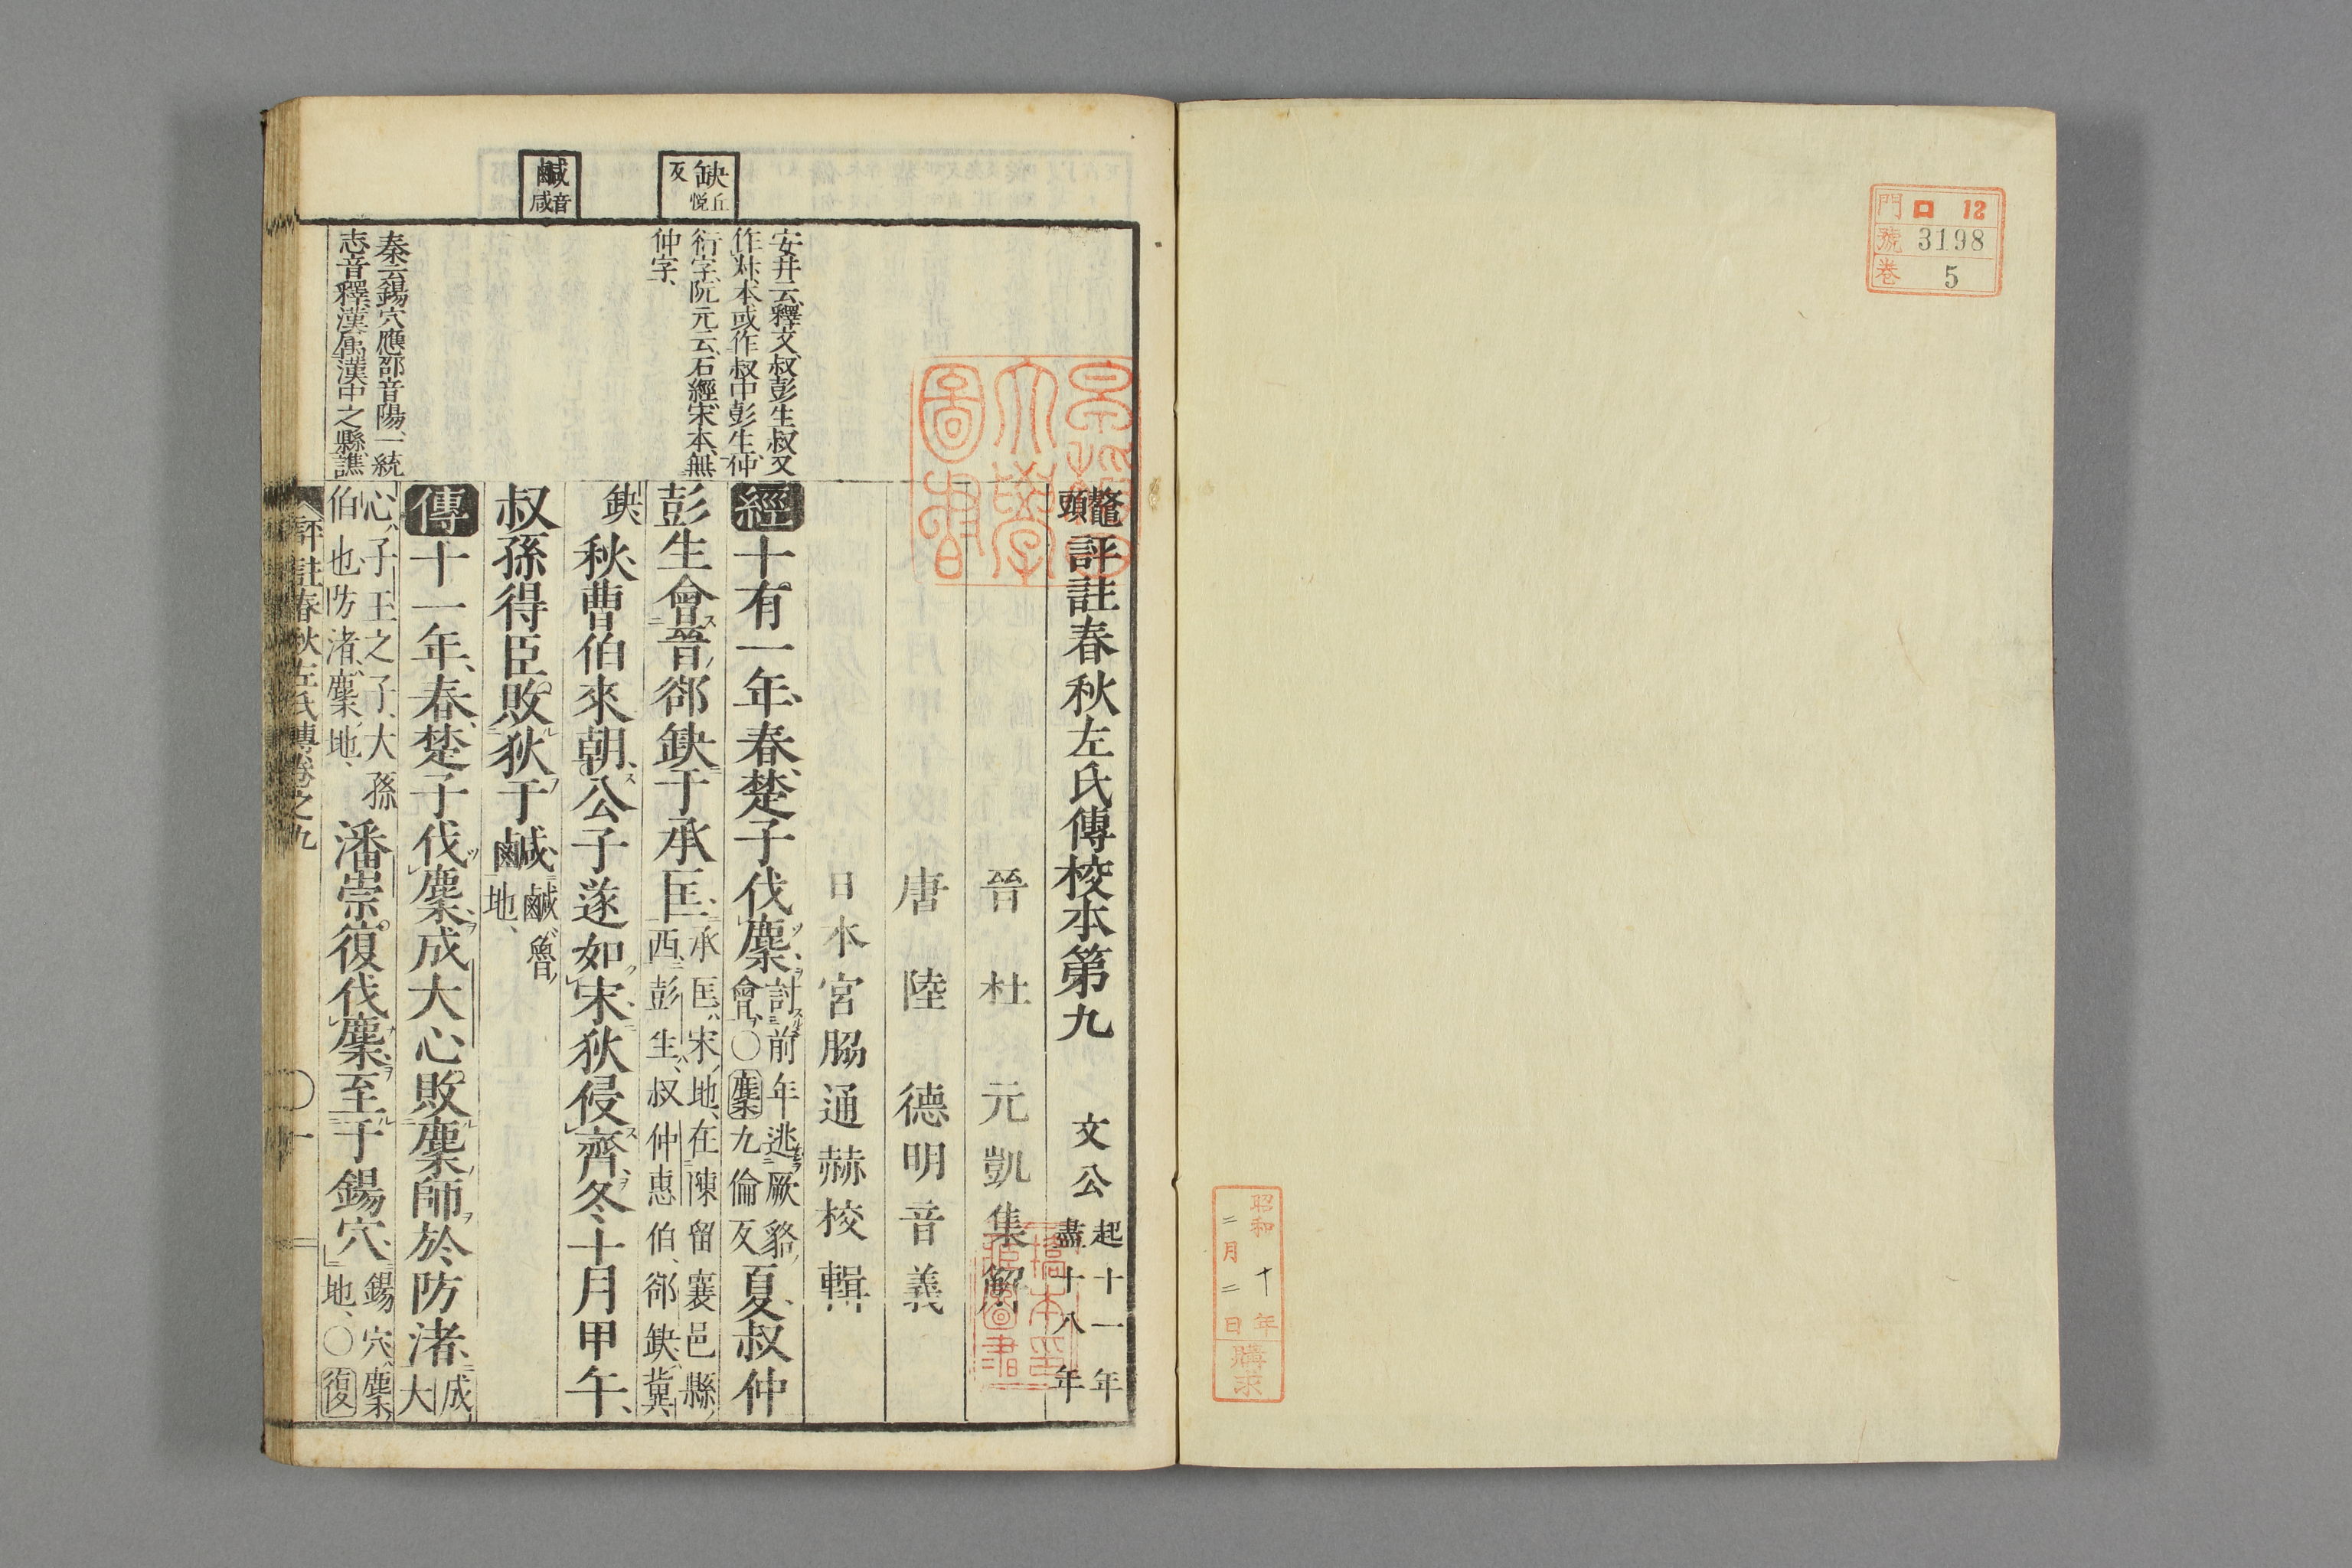 門 ロ 12
號 3198
卷 5
昭和十年
二月二日
購求
鼇頭評註春秋左氏傳校本第九 文公 起十一年盡十八年
晉 杜 元凱 集解
唐 陸 德明 音義
日本 宮脇通赫 校輯
經十有一年、春、楚子伐麇、討前年逃厥貉會、〇麇九倫反 夏、叔仲
彭生會晉郤缺于承匡、承匡、宋地、在陳留襄邑縣西、彭生、叔仲惠伯、郤缺、冀
缺 秋、曹伯來朝、公子遂如宋、狄侵齊、冬、十月甲午、
叔孫得臣敗狄于鹹、鹹、魯地、
傳十一年、春、楚子伐麇、成大心敗麇師於防渚、成大
心、子玉之子、大孫伯也、防渚、麇地、 潘崇復伐麇、至于錫穴、錫穴、麇地、〇復
缺丘悅反
鹹音咸
安井云、釋文、叔彭生、叔又
作尗、本或作叔中彭生、仲
衍字、阮元云、石經宋本、無
仲字、
秦云、錫穴、應邵音陽、一統
志音釋、漢屬漢中之縣、譙
評註春秋左氏傳卷之九
〇一
圖書